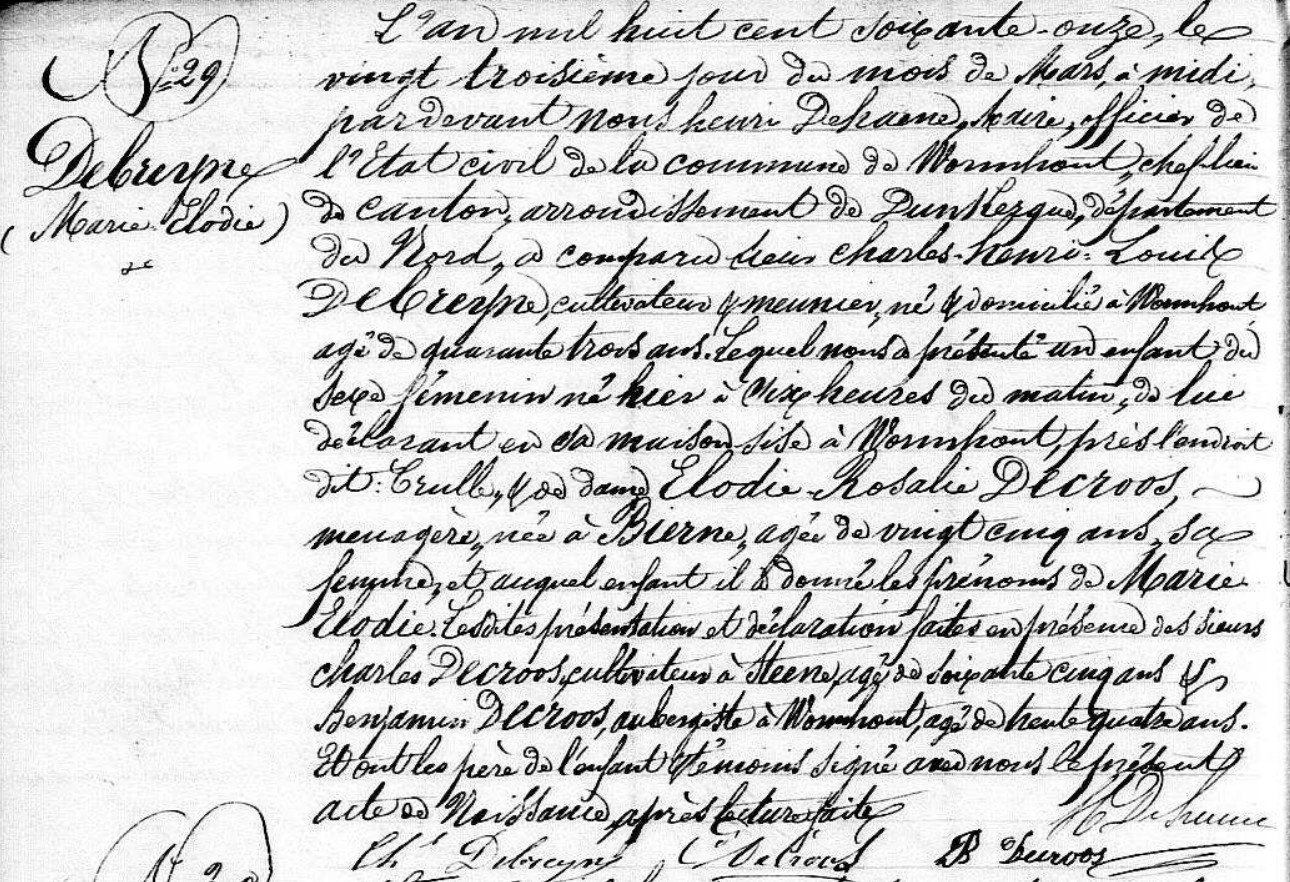 N° 29
Debreyne
(Marie Elodie)
L'an mil huit cent soixante-onze, le
vingt troisième jour du mois de Mars, à midi,
pardevant nous henri Dehaene, Maire, officier de
l'Etat civil de la commune de Wormhout, chef lieu
de canton, arrondissement de Dunkerque, département
du Nord, a comparu sieur charles-henri-Louis
Debreyne, cultivateur & meunier, né & domicilié à Wormhout,
agé de quarante trois ans. Lequel nous a présenté un enfant du
sexe fémenin né hier à dix heures du matin, de lui
déclarant en sa maison sise à Wormhout, près l'endroit
dit: Crulle, & de dame Elodie-Rosalie Decroos,
menagère, née à Bierne, agée de vingt cinq ans, sa
femme, et auquel enfant il a donné les prénoms de Marie
Elodie. Lesdites présentation et déclaration faites en présence des sieurs
charles Decroos, cultivateur à Steene, agé de soixante cinq ans &
Benjamin Decroos, aubergiste à Wormhout, agé de trente quatre ans.
Et ont les père de l'enfant & témoins signé avec nous le présent
acte de Naissance, après lecture faite
H Dehaene
Ch<sup>s</sup> Debreyne C Decroos B Decroos